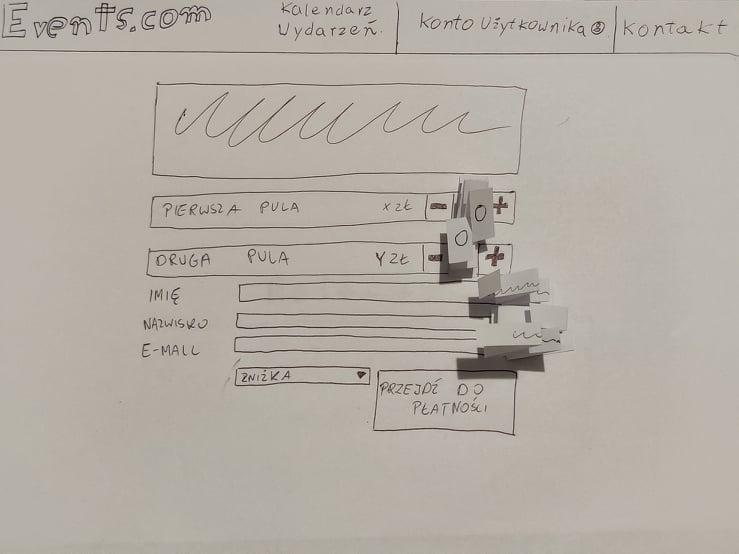 Events.com
Kalendarz
Wydarzeń
Konto Użytkownika
Kontakt
PIERWSZA PULA X ZŁ - 0 +
DRUGA PULA Y ZŁ - 0 +
IMIĘ
NAZWISKO
E-MAIL
ZNIŻKA
PRZEJDŹ DO
PŁATNOŚCI